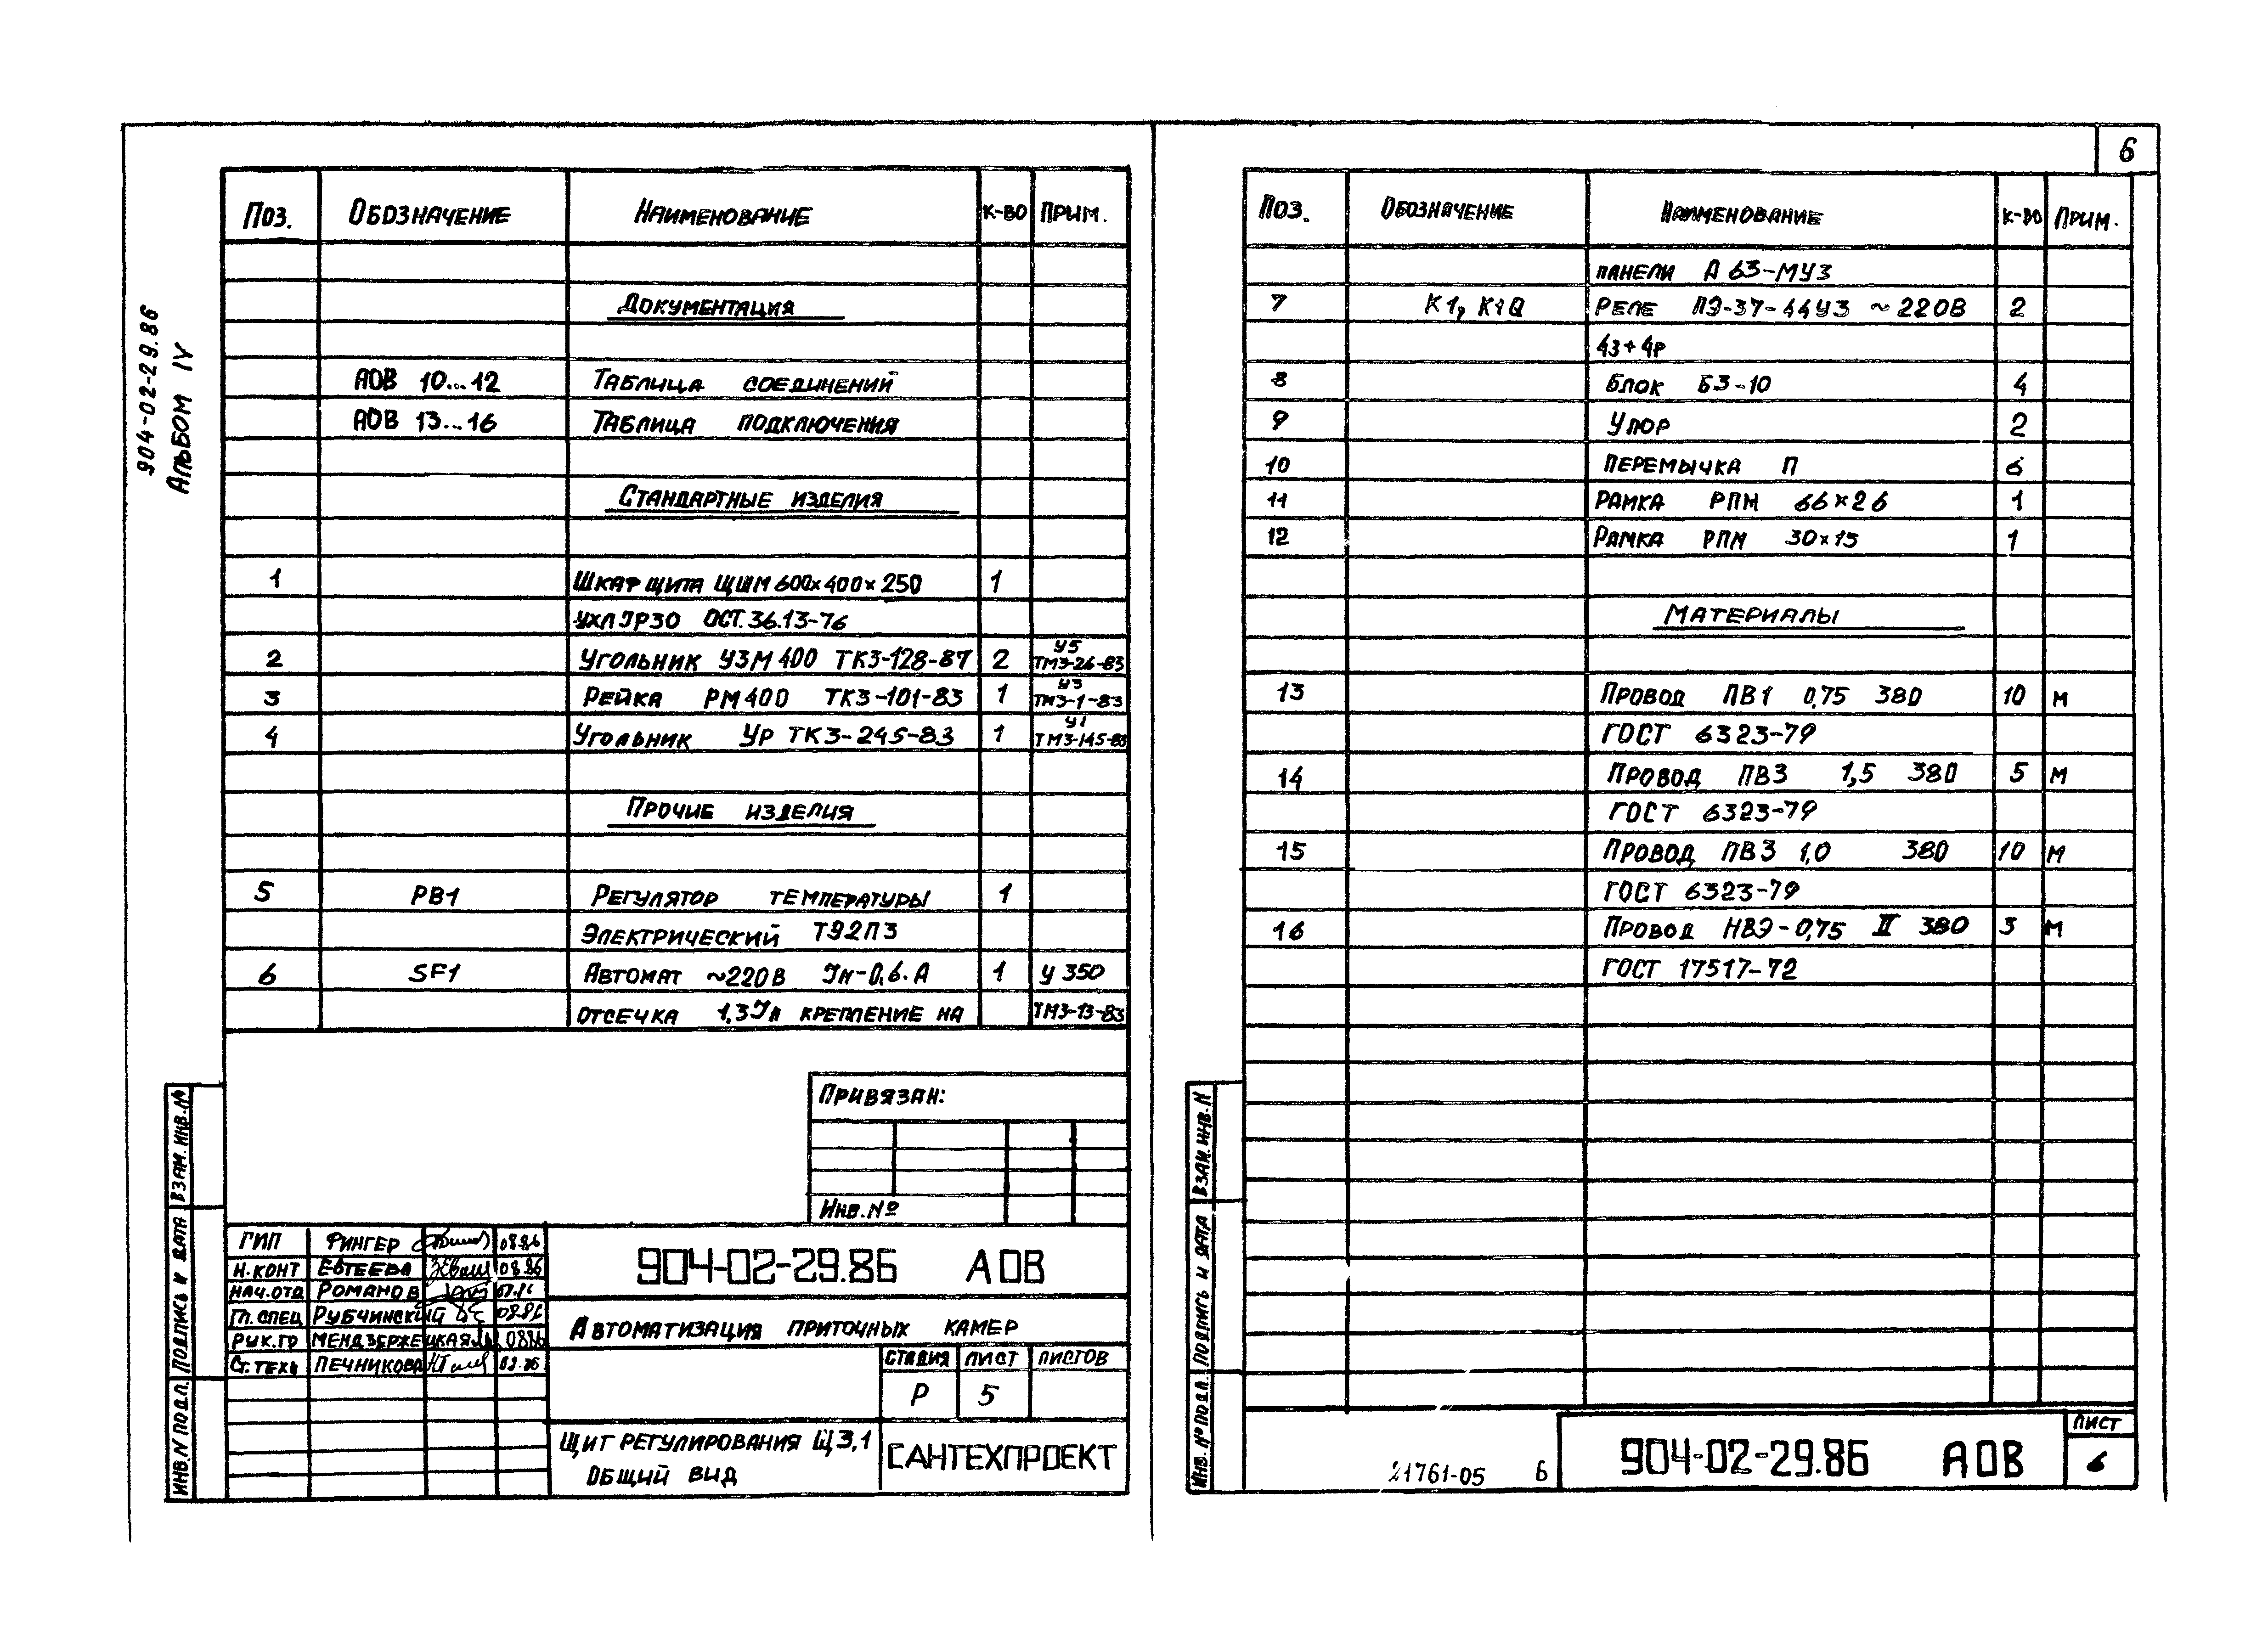 904-02-29.86
АЛЬБОМ IV
ПОЗ. ОБОЗНАЧЕНИЕ НАИМЕНОВАНИЕ К-ВО ПРИМ.
ДОКУМЕНТАЦИЯ
АОВ 10...12 ТАБЛИЦА СОЕДИНЕНИЙ
АОВ 13...16 ТАБЛИЦА ПОДКЛЮЧЕНИЯ
СТАНДАРТНЫЕ ИЗДЕЛИЯ
1 ШКАФ ЩИТА ЩШМ 600х400х250 1
ОСТ.36.13-76
У5
2 УГОЛЬНИК УЗМ400 ТК3-128-87 2 ТМ3-26-83
У3
3 РЕЙКА РМ400 ТК3-101-83 1 ТМ3-1-83
У1
4 УГОЛЬНИК УР ТК3-245-83 1 ТМ3-145-83
ПРОЧИЕ ИЗДЕЛИЯ
5 РВ1 РЕГУЛЯТОР ТЕМПЕРАТУРЫ 1
ЭЛЕКТРИЧЕСКИЙ
6 SF1 АВТОМАТ ~220В Iн-0,6.А 1 У 350
ОТСЕЧКА 1,3Iн КРЕПЛЕНИЕ НА ТМ3-13-83
ПРИВЯЗАН:
ИНВ.№
ГИП ФИНГЕР 08.86
Н.КОНТ ЕВТЕЕВА 08.86
НАЧ.ОТД РОМАНОВ
ГЛ.СПЕЦ РУБЧИНСКИЙ 08.86
РУК.ГР МЕНДЗЕРЖЕЦКАЯ 08.86
СТ.ТЕХ ПЕЧНИКОВА
904-02-29.86 АОВ
АВТОМАТИЗАЦИЯ ПРИТОЧНЫХ КАМЕР
СТАДИЯ ЛИСТ ЛИСТОВ
Р 5
ЩИТ РЕГУЛИРОВАНИЯ Щ3,1
ОБЩИЙ ВИД
САНТЕХПРОЕКТ
ИНВ.N ПОДЛ. ПОДПИСЬ И ДАТА ВЗАМ.ИНВ.№
6
ПОЗ. ОБОЗНАЧЕНИЕ НАИМЕНОВАНИЕ К-ВО ПРИМ.
ПАНЕЛИ А63-МУ3
7 К1, РЕЛЕ ПЭ-37-44У3 ~220В 2
4з+4р
8 БЛОК БЗ-10 4
9 УПОР 2
10 ПЕРЕМЫЧКА П
11 РАМКА РПМ 66х26 1
12 РАМКА РПМ 30х15 1
МАТЕРИАЛЫ
13 ПРОВОД ПВ1 0,75 380 10 М
ГОСТ 6323-79
14 ПРОВОД ПВ3 1,5 380 5 М
ГОСТ 6323-79
15 ПРОВОД ПВ3 1,0 380 10 М
ГОСТ 6323-79
16 ПРОВОД НВЭ-0,75 II 380 3 М
ГОСТ 17517-72
ИНВ.№ ПОДЛ. ПОДПИСЬ И ДАТА ВЗАМ.ИНВ.N
21761-05 6
904-02-29.86 АОВ
ЛИСТ
6